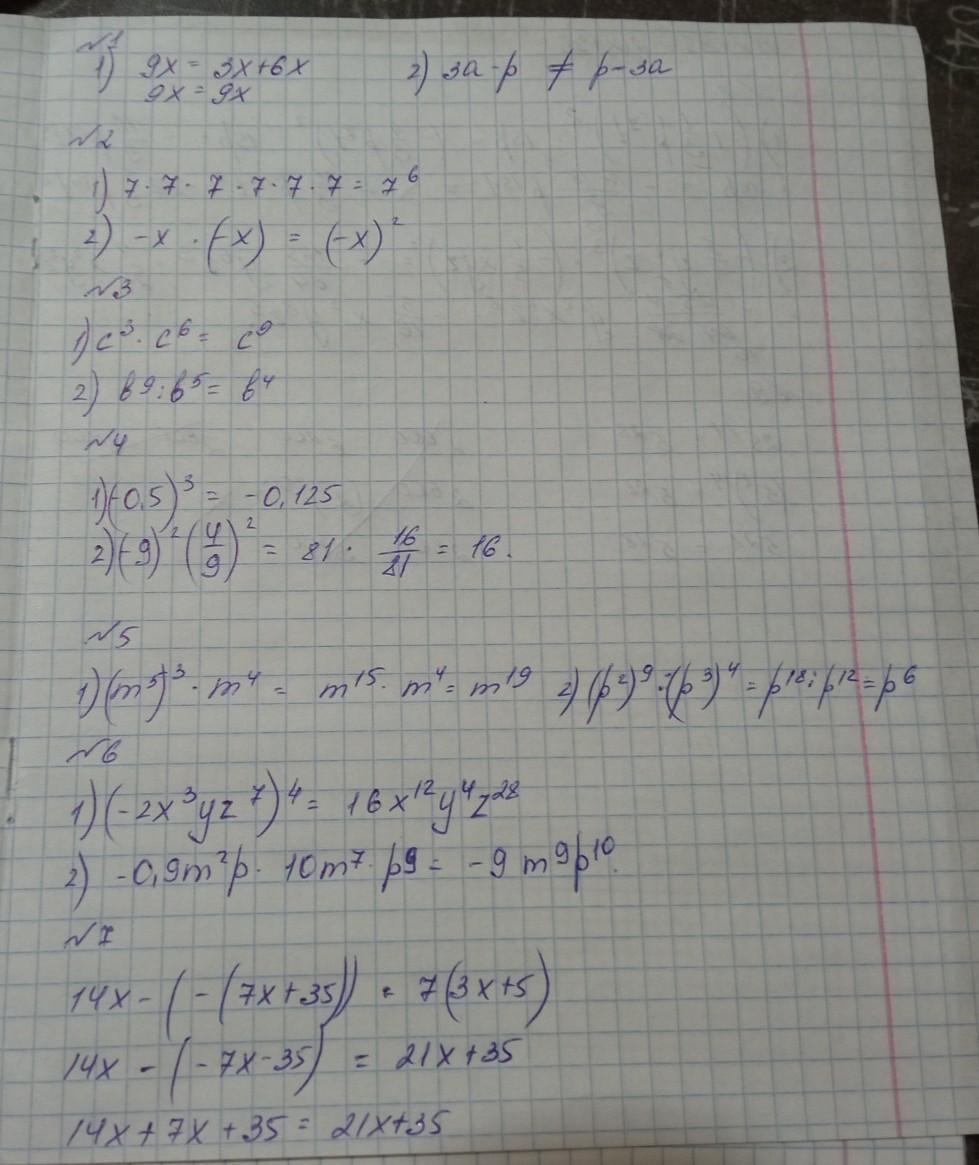 №1
1) 9x = 3x+6x 2) 3a-p ≠ p-3a
9x = 9x
№2
1) 7·7·7·7·7·7 = 7⁶
2) -x · (-x) = (-x)²
№3
1) c³·c⁶ = c⁹
2) b⁹:b⁵ = b⁴
№4
1) (-0,5)³ = -0,125
2) (-9)² (4/9)² = 81 · 16/81 = 16.
№5
1) (m⁵)³ · m⁴ = m¹⁵ · m⁴ = m¹⁹ 2) (p²)⁹ : (p³)⁴ = p¹⁸ : p¹² = p⁶
№6
1) (-2x³yz⁷)⁴ = 16x¹²y⁴z²⁸
2) -0,9m²p · 10m⁷ · p⁹ = -9m⁹p¹⁰.
№7
14x - (-(7x+35)) = 7(3x+5)
14x - (-7x-35) = 21x+35
14x+7x+35 = 21x+35